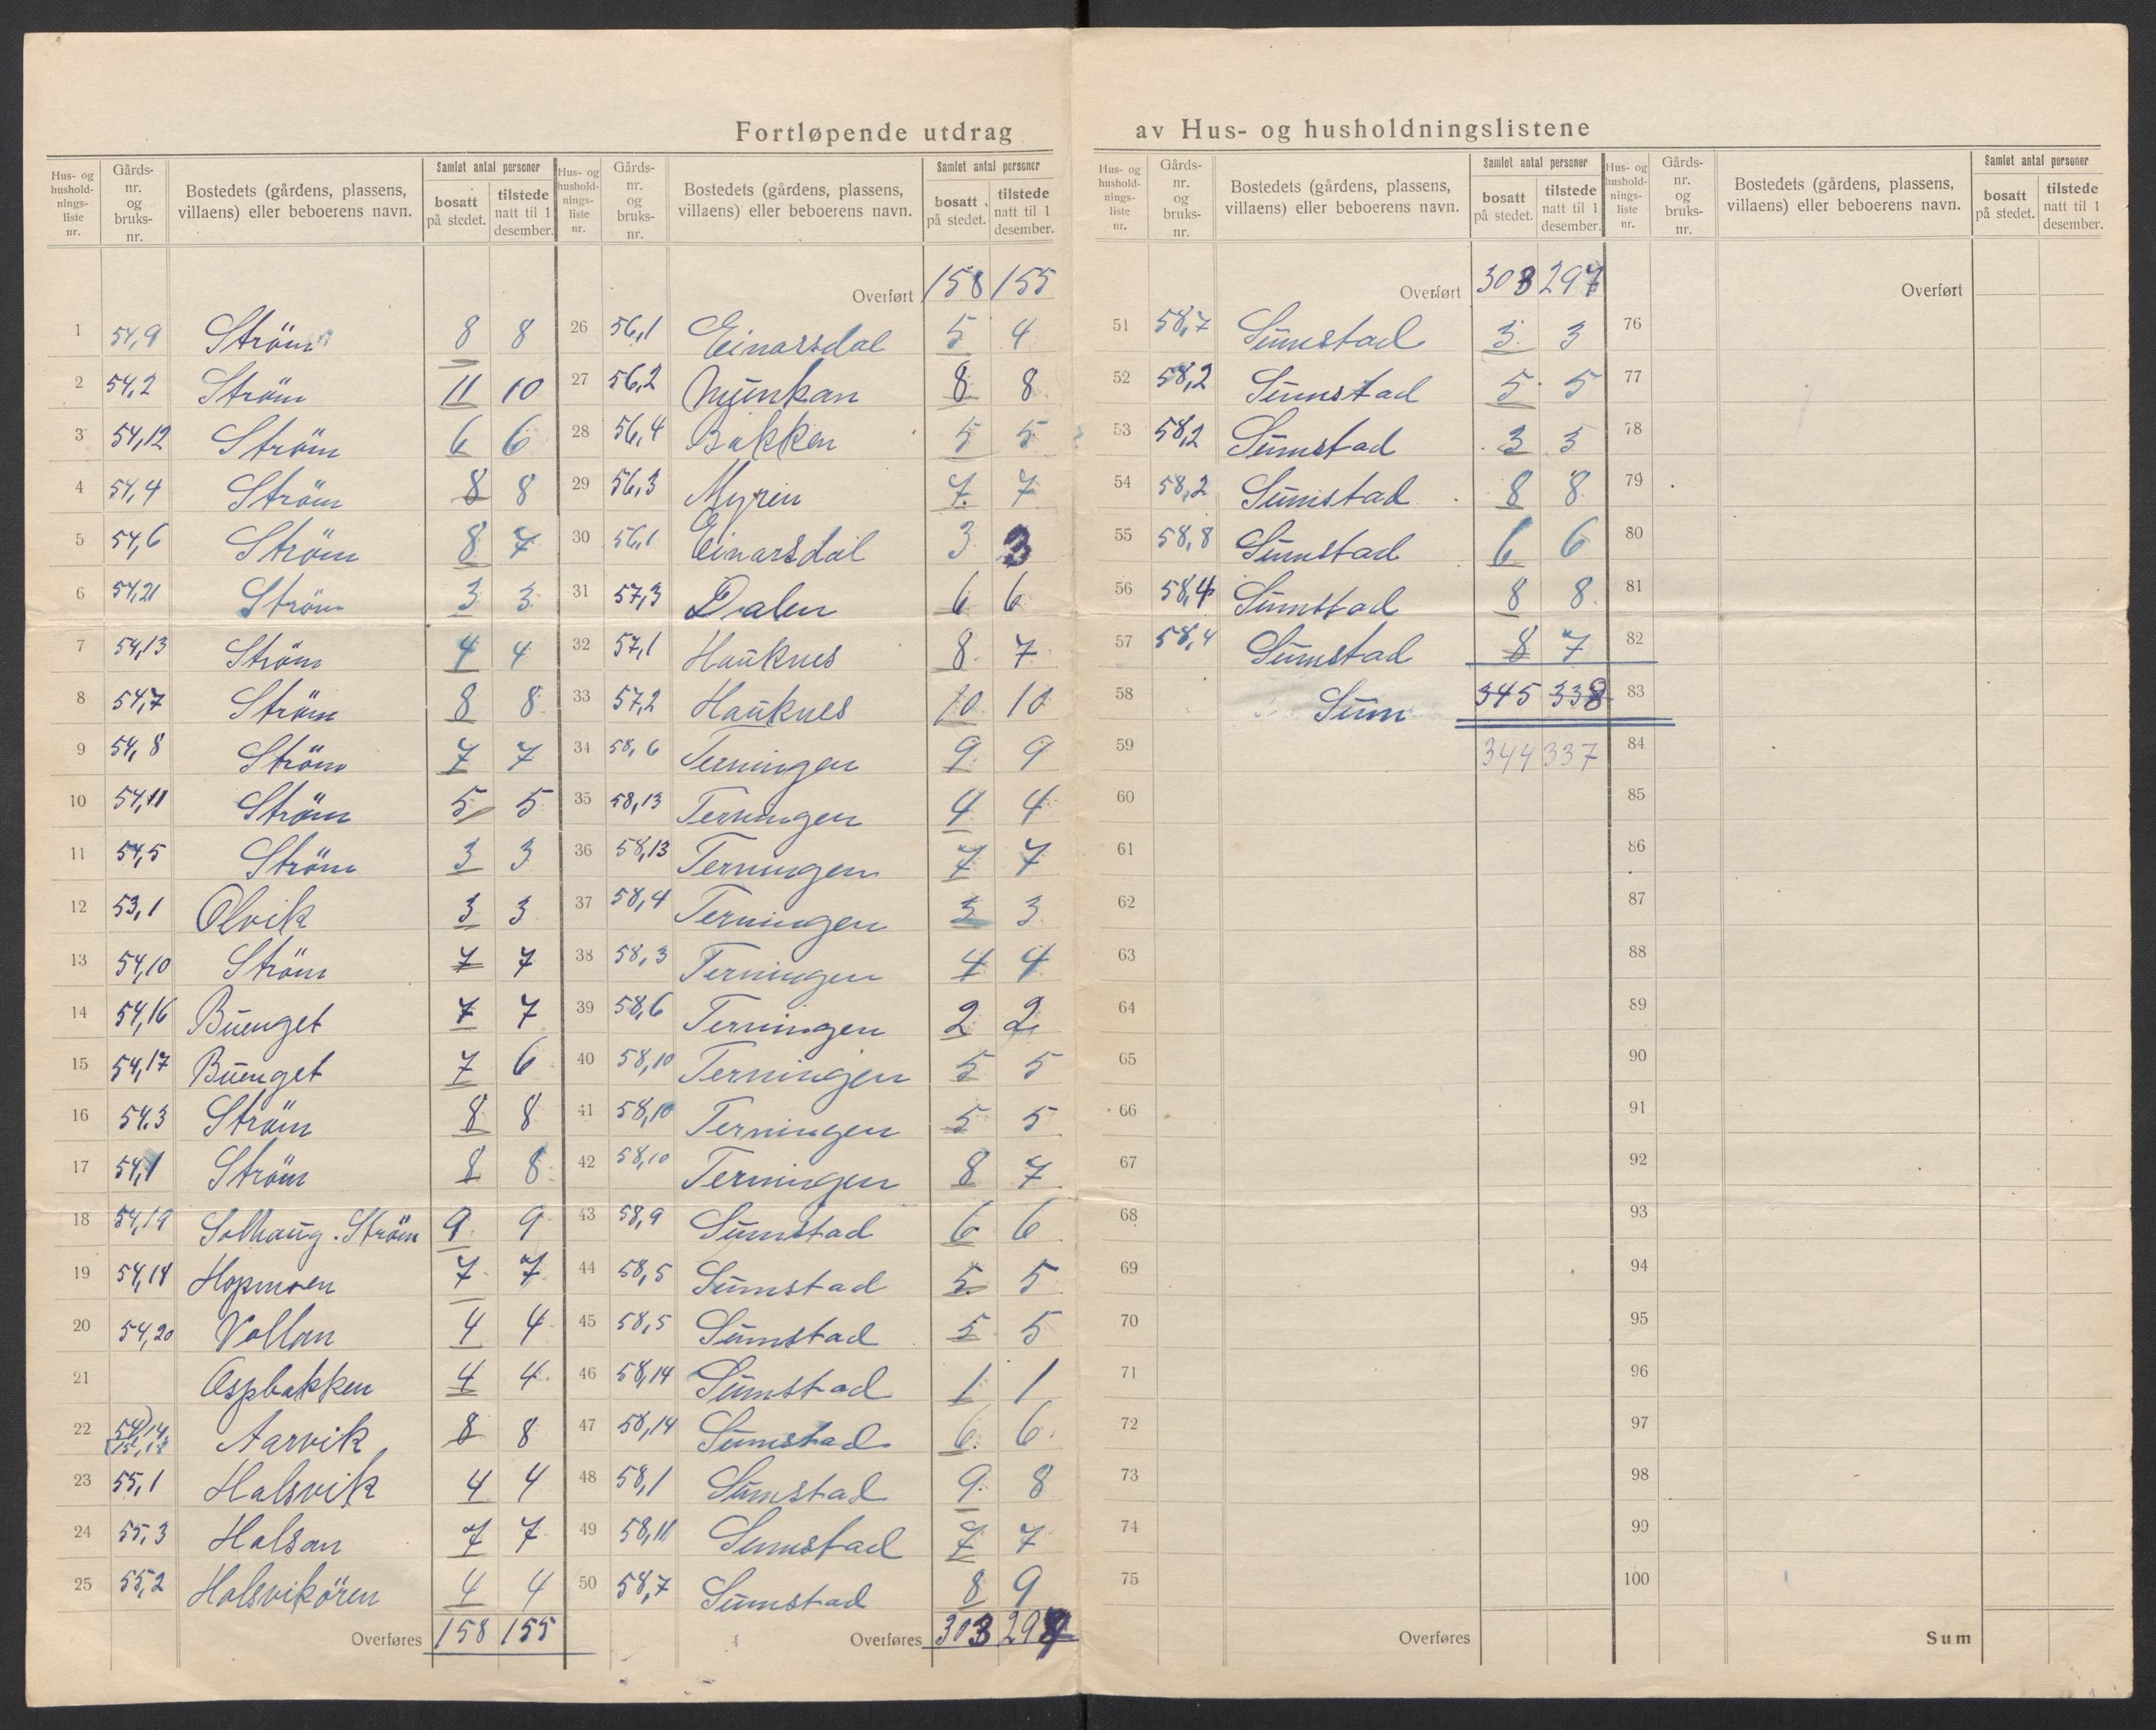 Fortløpende utdrag av Hus- og husholdningslistene
Hus- og hushold-nings-liste nr. | Gårds-nr. og bruks-nr. | Bostedets (gårdens, plassens, villaens) eller beboerens navn. | Samlet antal personer | bosatt på stedet. | tilstede natt til 1 desember.
1 54,9 Ström 8 8
2 54,2 Ström 11 10
3 54,12 Ström 6 6
4 54,4 Ström 8 8
5 54,6 Ström 8 7
6 54,21 Ström 3 3
7 54,13 Ström 4 4
8 54,7 Ström 8 8
9 54,8 Ström 7 7
10 54,11 Ström 5 5
11 54,5 Ström 3 3
12 53,1 Olvik 3 3
13 54,10 Ström 7 7
14 54,16 Buenget 7 7
15 54,17 Buenget 7 6
16 54.3 Ström 8 8
17 54,1 Ström 8 8
18 54,19 Solhaug. Ström 9 9
19 54,14 Hopmoen 7 7
20 54,20 Vollan 4 4
21 Ospbakken 4 4
22 54,14, Aarvik 8 8
23 55,1 Halsvik 4 4
24 55,3 Halsan 7 7
25 55,2 Halsvikören 4 4
Overføres 158 155
Hus- og hushold-nings-liste nr. | Gårds-nr. og bruks-nr. | Bostedets (gårdens, plassens, villaens) eller beboerens navn. | Samlet antal personer | bosatt på stedet. | tilstede natt til 1 desember.
Overført 158 155
26 56,1 Einarsdal 5 4
27 56,2 Munkan 8 8
28 56,4 Bakken 5 5
29 56,3 Myren 7 7
30 56,1 Einarsdal 3 3
31 57,3 Dalen 6 6
32 57,1 Hauknes 8 7
33 57,2 Hauknes 10 10
34 58,6 Terningen 9 9
35 58,13 Terningen 4 4
36 58,13 Terningen 7 7
37 58,4 Terningen 3 3
38 58,3 Terningen 4 4
39 58,6 Terningen 2 2
40 58,10 Terningen 5 5
41 58,10 Terningen 5 5
42 58,10 Terningen 8 7
43 58,9 Sumstad 6 6
44 58,5 Sumstad 5 5
45 58,5 Sumstad 5 5
46 58,14 Sumstad 1 1
47 58,14 Sumstad 6 6
48 58,1 Sumstad 9 8
49 58,11 Sumstad 7 7
50 58,7 Sumstad 8 9
Overføres 303 297
Hus- og hushold-nings-liste nr. | Gårds-nr. og bruks-nr. | Bostedets (gårdens, plassens, villaens) eller beboerens navn. | Samlet antal personer | bosatt på stedet. | tilstede natt til 1 desember.
Overført 303 297
51 58,7 Sumstad 3 3
52 58,2 Sumstad 5 5
53 58,2 Sumstad 3 3
54 58,2 Sumstad 8 8
55 58,8 Sumstad 6 6
56 58,4 Sumstad 8 8
57 58,4 Sumstad 8 7
58 Sum 345 338
59 344 337
60
61
62
63
64
65
66
67
68
69
70
71
72
73
74
75
Overføres
Hus- og hushold-nings-liste nr. | Gårds-nr. og bruks-nr. | Bostedets (gårdens, plassens, villaens) eller beboerens navn. | Samlet antal personer | bosatt på stedet. | tilstede natt til 1 desember.
Overført
76
77
78
79
80
81
82
83
84
85
86
87
88
89
90
91
92
93
94
95
96
97
98
99
100
Sum